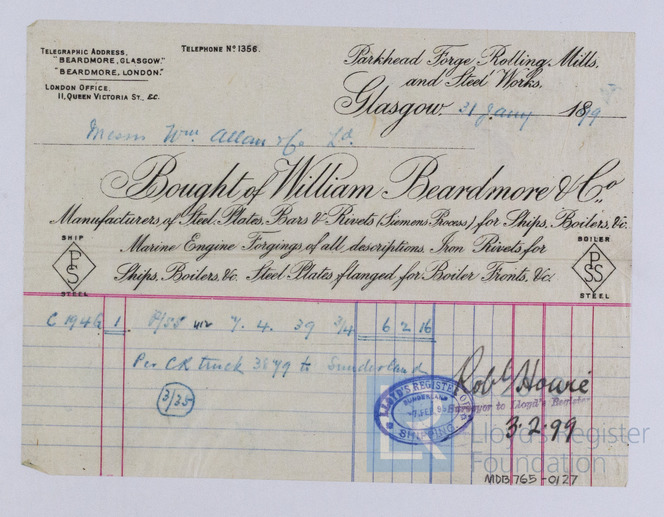 TELEGRAPHIC ADDRESS.
"BEARDMORE, GLASGOW."
"BEARDMORE, LONDON."
LONDON OFFICE.
11, QUEEN VICTORIA ST., E.C.
TELEPHONE No 1356.
Parkhead Forge Rolling Mills,
and Steel Works.
Glasgow. 31 Jany 1899
Messrs Wm Allan & Co Ld.
Bought of William Beardmore & Co.
Manufacturers of Steel, Plates, Bars & Rivets (Siemens Process) for Ships, Boilers, &c.
Marine Engine Forgings of all descriptions, Iron Rivets for
Ships, Boilers, &c. Steel Plates flanged for Boiler Fronts, &c.
SHIP
PS
STEEL
BOILER
PSS
STEEL
C 1946 1 P/SS 7. 4. 39 3/4 6 2 16
Per CR truck 3879 to Sunderland
3/35
LLOYD'S REGISTER OF
SUNDERLAND
SHIPPING
Robt Howie
Surveyor to Lloyd's Register
3.2.99
Lloyd's Register
Foundation
LR
MDB765-0127